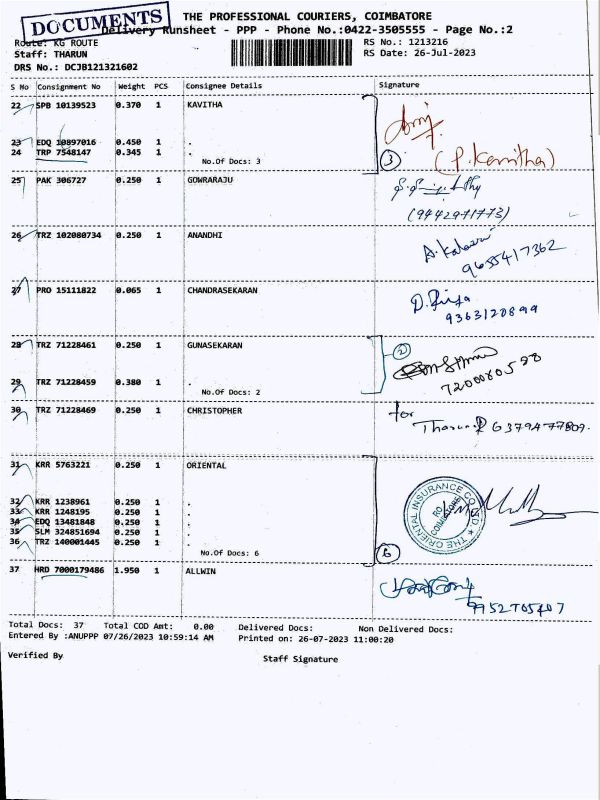 DOCUMENTS
THE PROFESSIONAL COURIERS, COIMBATORE
Delivery Runsheet - PPP - Phone No.:0422-3505555 - Page No.:2
Route: KG ROUTE
RS No.: 1213216
Staff: THARUN
RS Date: 26-Jul-2023
DRS No.: DCJB121321602
S No Consignment No Weight PCS Consignee Details Signature
22 SPB 10139523 0.370 1 KAVITHA
23 EDQ 10897016 0.450 1 .
24 TRP 7548147 0.345 1 .
No.Of Docs: 3
3
(P. Kavitha)
25 PAK 306727 0.250 1 GOWRARAJU
(9442971773)
26 TRZ 102080734 0.250 1 ANANDHI
9655417362
27 PRO 15111822 0.065 1 CHANDRASEKARAN
9363120899
28 TRZ 71228461 0.250 1 GUNASEKARAN
2
29 TRZ 71228459 0.380 1 .
No.Of Docs: 2
7200080598
30 TRZ 71228469 0.250 1 CHRISTOPHER
for
Tharun 6379477809.
31 KRR 5763221 0.250 1 ORIENTAL
32 KRR 1238961 0.250 1 .
33 KRR 1248195 0.250 1 .
34 EDQ 13481848 0.250 1 .
35 SLM 324851694 0.250 1 .
36 TRZ 140001445 0.250 1 .
No.Of Docs: 6
6
THE ORIENTAL INSURANCE CO LTD
RO
COIMBATORE
37 HRD 7000179486 1.950 1 ALLWIN
9952705407
Total Docs: 37 Total COD Amt: 0.00 Delivered Docs: Non Delivered Docs:
Entered By :ANUPPP 07/26/2023 10:59:14 AM Printed on: 26-07-2023 11:00:20
Verified By Staff Signature